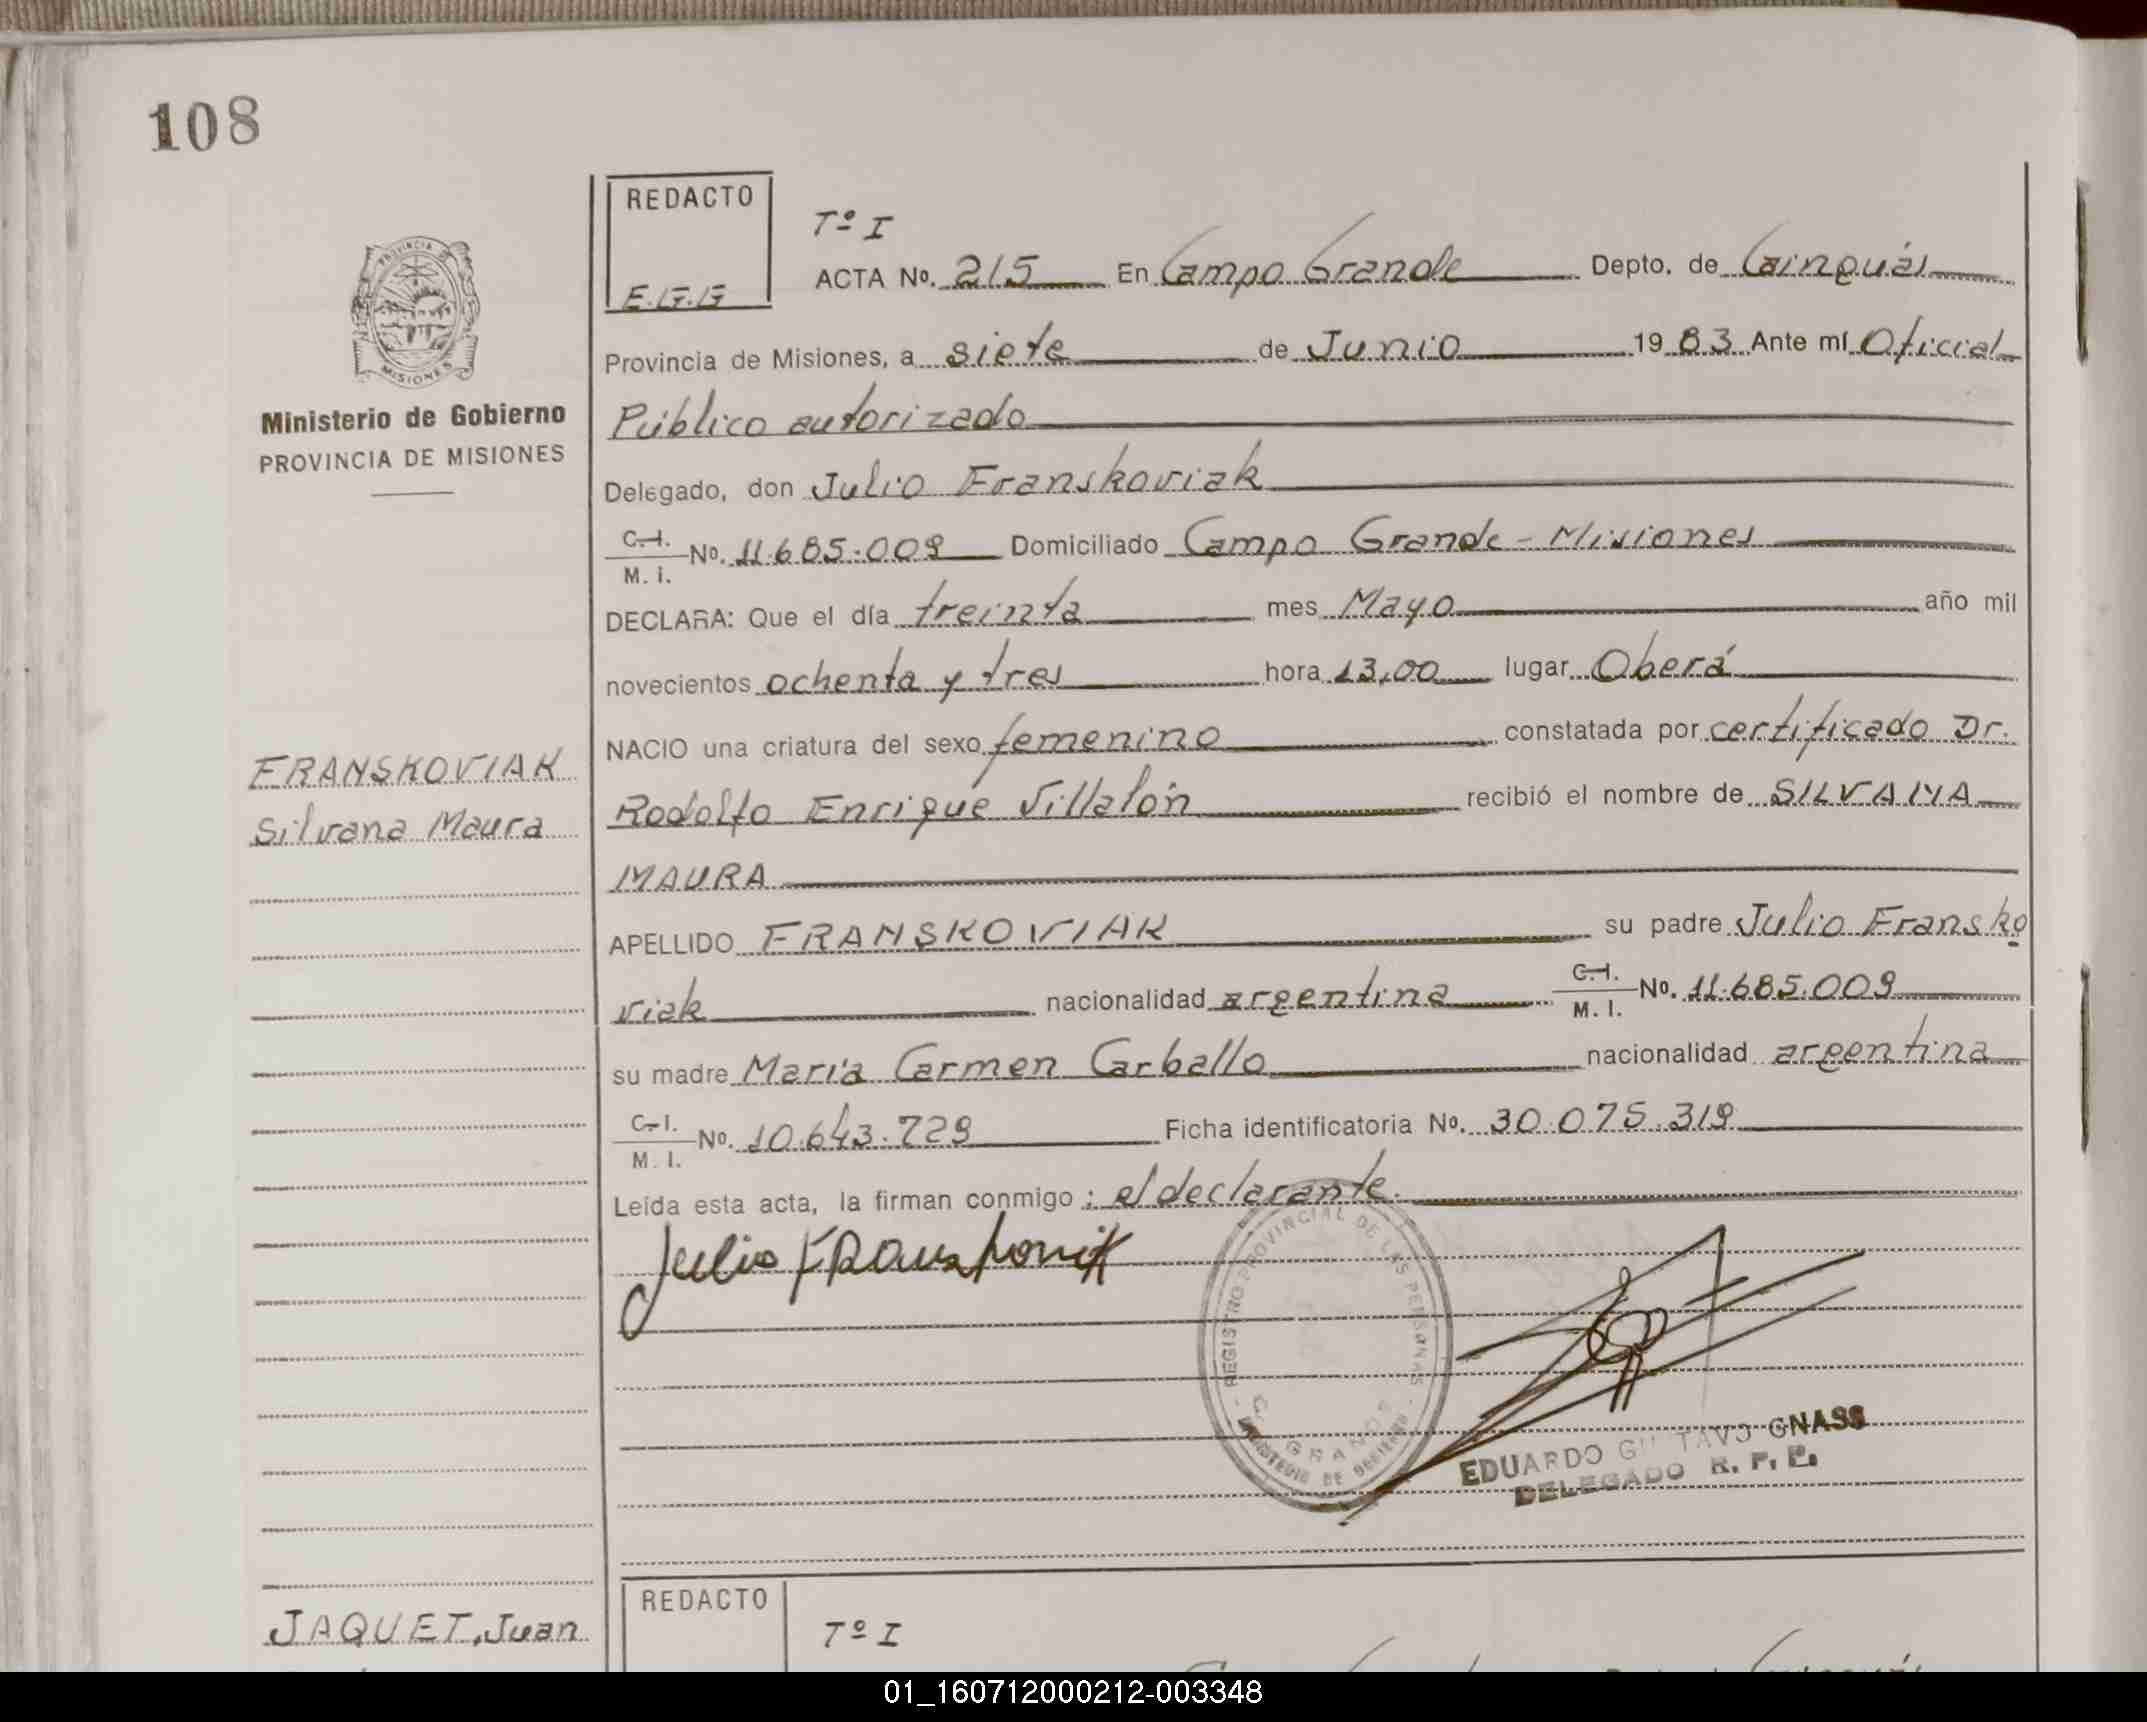 108
REDACTO
E.G.G
Tº I
ACTA Nº. 215 En Campo Grande Depto. de Cainguás
Provincia de Misiones, a siete de Junio 19 83 Ante mí Oficial
Público autorizado
Delegado, don Julio Franskoviak
C.I. M. I. Nº. 11.685.009 Domiciliado Campo Grande - Misiones
DECLARA: Que el día treinta mes Mayo año mil
novecientos ochenta y tres hora 13,00 lugar Oberá
NACIO una criatura del sexo femenino constatada por certificado Dr.
Rodolfo Enrique Villalón recibió el nombre de SILVANA
MAURA
APELLIDO FRANSKOVIAK su padre Julio Fransko
viak nacionalidad argentina C.I. M. I. Nº. 11.685.009
su madre María Carmen Carballo nacionalidad argentina
C.I. M. I. Nº. 10.643.729 Ficha identificatoria Nº. 30.075.319
Leída esta acta, la firman conmigo : el declarante.
Julio
REGISTRO PROVINCIAL DE LAS PERSONAS
C. GRANDE
MINISTERIO DE GOBIERNO
EDUARDO GUSTAVO GNASS
DELEGADO R. P. P.
PROVINCIA DE
MISIONES
Ministerio de Gobierno
PROVINCIA DE MISIONES
FRANSKOVIAK
Silvana Maura
JAQUET, Juan
REDACTO
Tº I
01_160712000212-003348